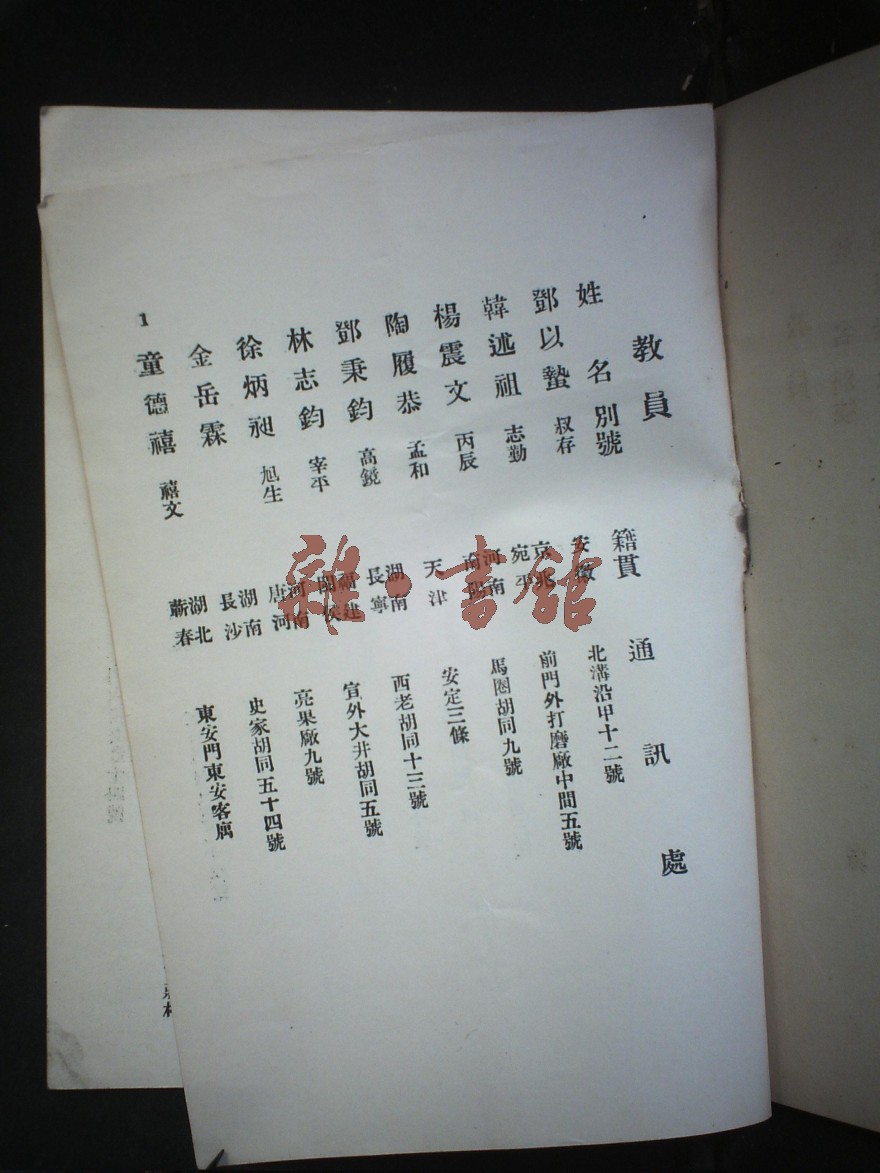 教員
姓名 別號 籍貫 通訊處
鄧以蟄 叔存 安徽 北溝沿甲十二號
韓述祖 志勤 京兆宛平 前門外打磨廠中間五號
楊震文 丙辰 河南南陽 馬圈胡同九號
陶履恭 孟和 天津 安定三條
鄧秉鈞 高鏡 湖南長寧 西老胡同十三號
林志鈞 宰平 福建閩侯 宣外大井胡同五號
徐炳昶 旭生 河南唐河 亮果廠九號
金岳霖 湖南長沙 史家胡同五十四號
童德禧 禧文 湖北蘄春 東安門東安客寓
1
雜·書館